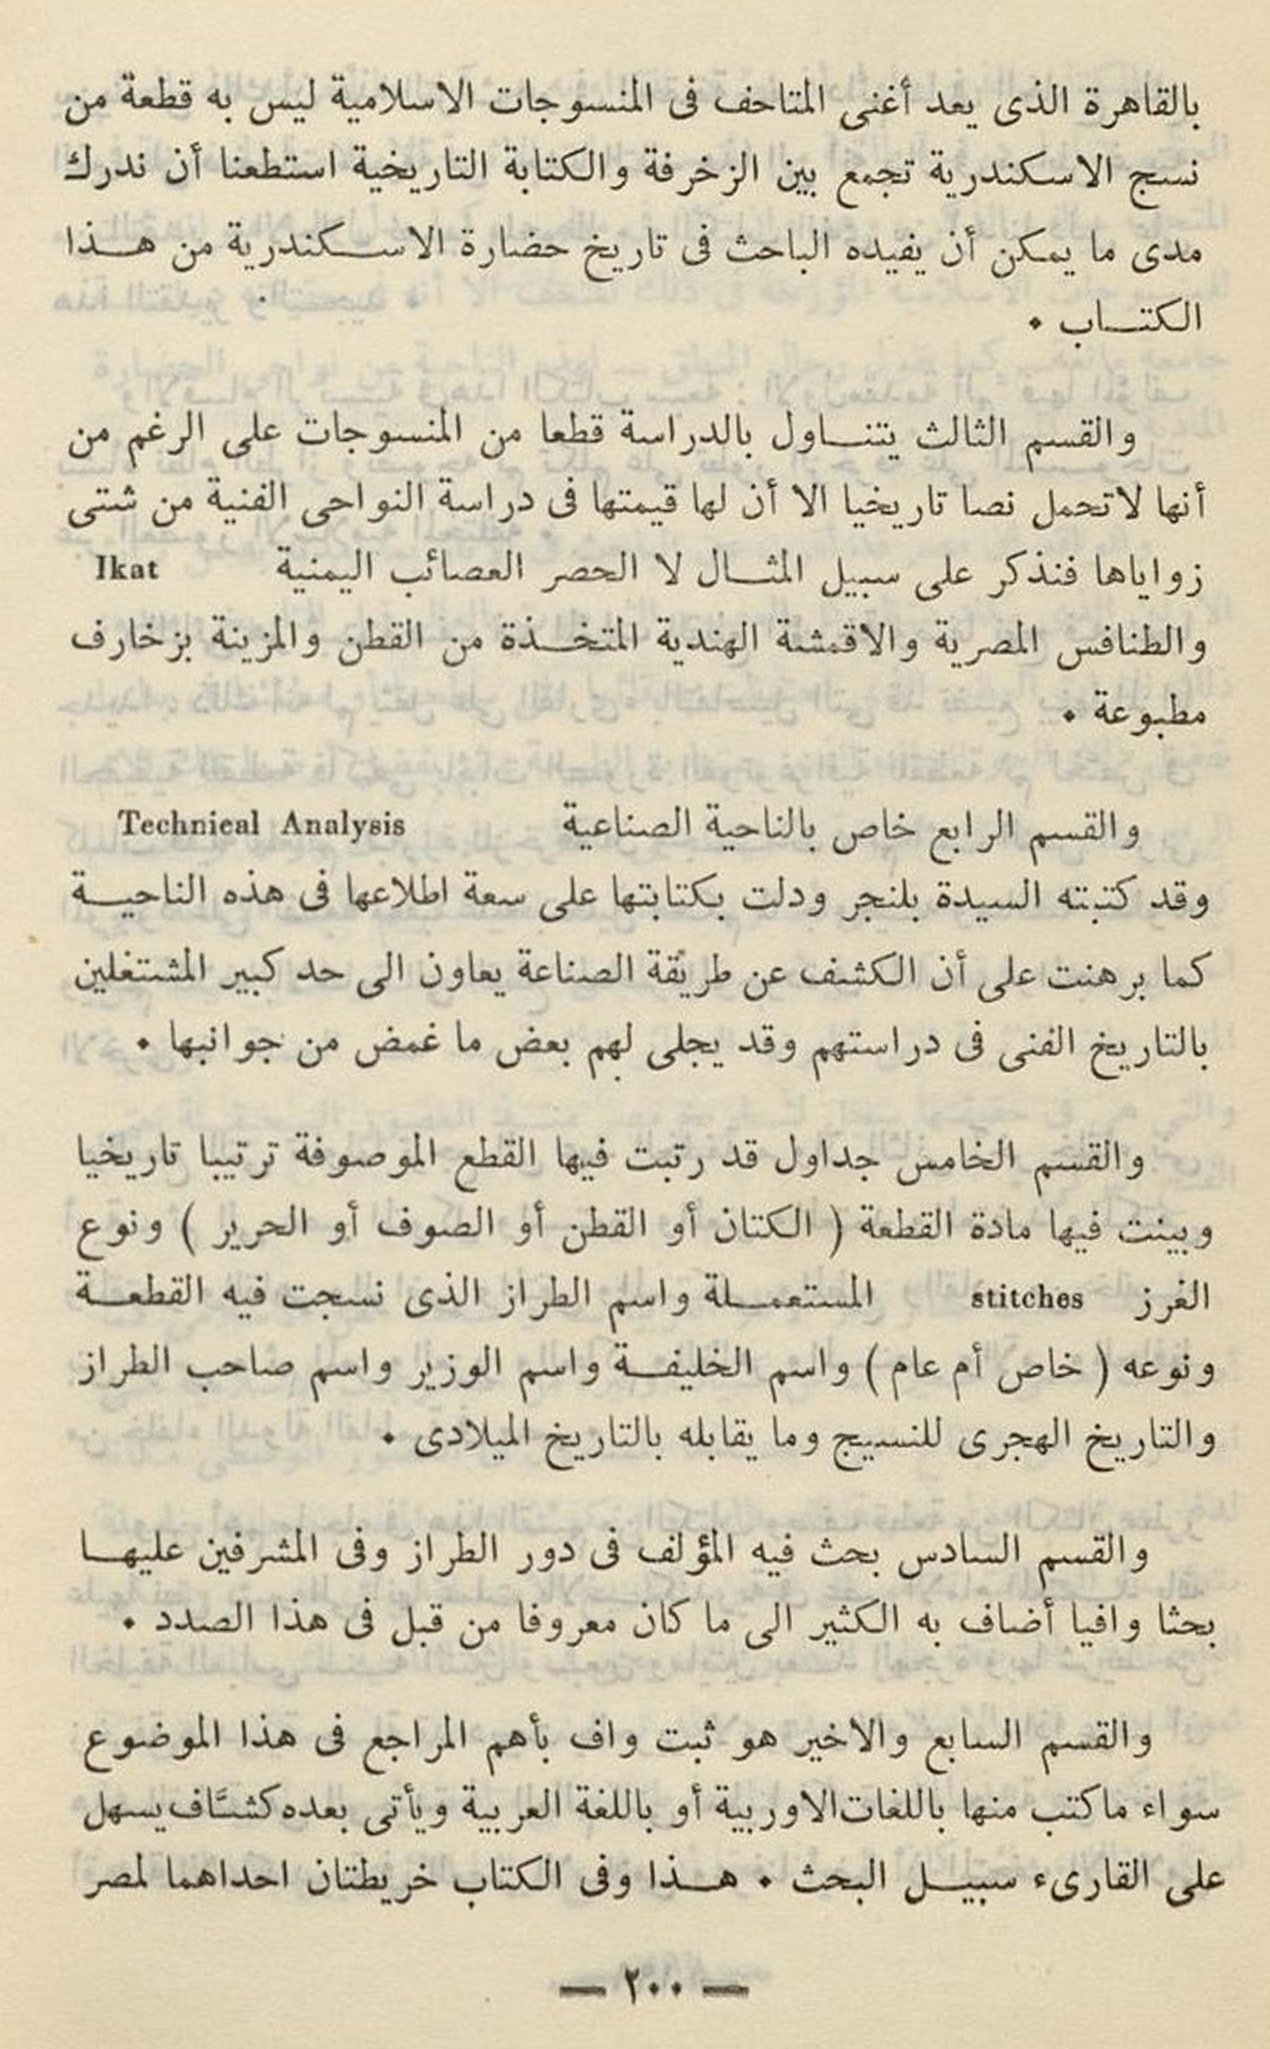 بالقاهرة الذى يعد أغنى المتاحف فى المنسوجات الاسلامية ليس به قطعة من
نسج الاسكندرية تجمع بين الزخرفة والكتابة التاريخية استطعنا أن ندرك
مدى ما يمكن أن يفيده الباحث فى تاريخ حضارة الاسكندرية من هذا
الكتاب ٠
والقسم الثالث يتناول بالدراسة قطعا من المنسوجات على الرغم من
أنها لاتحمل نصا تاريخيا الا أن لها قيمتها فى دراسة النواحى الفنية من شتى
زواياها فنذكر على سبيل المثال لا الحصر العصائب اليمنية Ikat
والطنافس المصرية والاقمشة الهندية المتخذة من القطن والمزينة بزخارف
مطبوعة ٠
والقسم الرابع خاص بالناحية الصناعية Technical Analysis
وقد كتبته السيدة بلنجر ودلت بكتابتها على سعة اطلاعها فى هذه الناحية
كما برهنت على أن الكشف عن طريقة الصناعة يعاون الى حد كبير المشتغلين
بالتاريخ الفنى فى دراستهم وقد يجلى لهم بعض ما غمض من جوانبها ٠
والقسم الخامس جداول قد رتبت فيها القطع الموصوفة ترتيبا تاريخيا
وبينت فيها مادة القطعة ( الكتان أو القطن أو الصوف أو الحرير ) ونوع
الغرز stitches المستعملة واسم الطراز الذى نسجت فيه القطعة
ونوعه ( خاص أم عام ) واسم الخليفة واسم الوزير واسم صاحب الطراز
والتاريخ الهجرى للنسيج وما يقابله بالتاريخ الميلادى ٠
والقسم السادس بحث فيه المؤلف فى دور الطراز وفى المشرفين عليها
بحثا وافيا أضاف به الكثير الى ما كان معروفا من قبل فى هذا الصدد ٠
والقسم السابع والاخير هو ثبت واف بأهم المراجع فى هذا الموضوع
سواء ماكتب منها باللغات الاوربية أو باللغة العربية ويأتى بعده كشَّاف يسهل
على القارىء سبيل البحث ٠ هذا وفى الكتاب خريطتان احداهما لمصر
— ٢٠٠ —